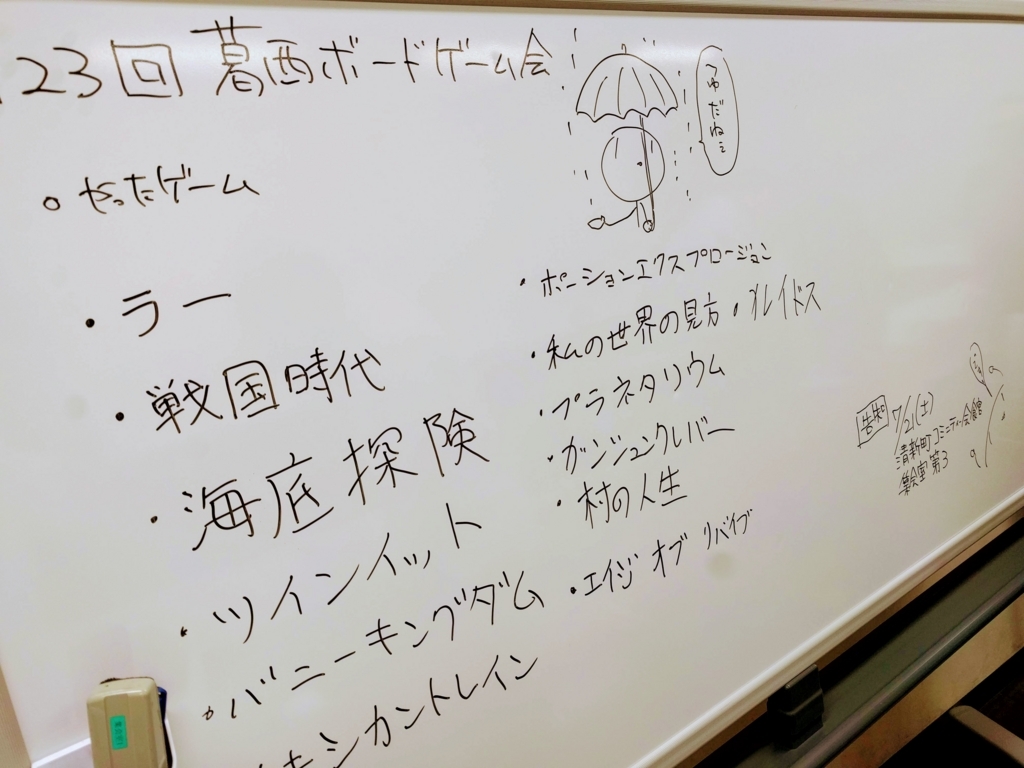 23回 葛西ボードゲーム会
つゆだねぇ
やったゲーム
・ラー
・戦国時代
・海底探険
・ツインイット
・バニーキングダム
キシカントレイン
・ポーションエクスプロージョン
・私の世界の見方・ブレイドス
・プラネタリウム
・ガンジュンクレバー
・村の人生
・エイジ オブ リバイブ
告知 7/21(土)
清新町コミュニティ会館
集会室第3